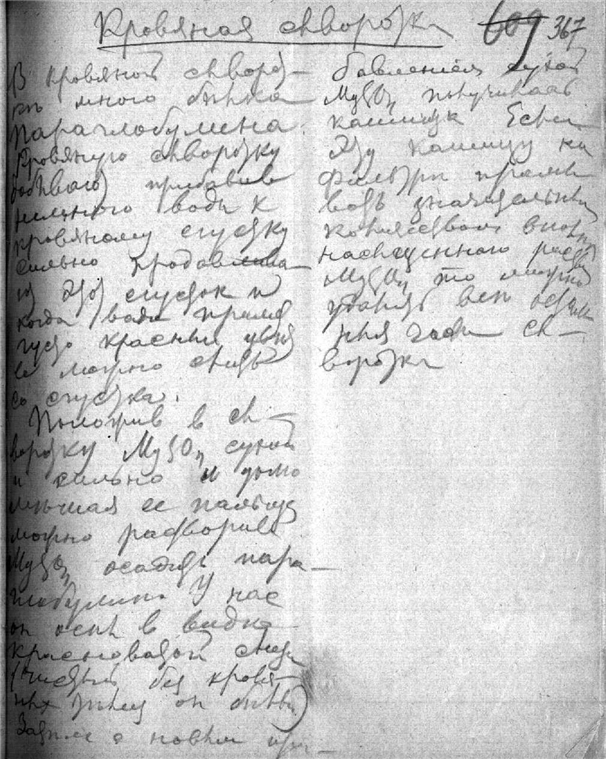 Кровяная сыворотка
367
В кровяной сыворот-
кѣ много бѣлка
параглобулина.
Кровяную сыворотку
прибавив
немного воды к
кровяному сгустку
сильно продавлива
ют этот сгусток и
когда вода примет
густо красный цвѣт
ее можно слить
со сгустка.
Положив в сы-
воротку MgSO4 сухой
и сильно и долго
мѣшая ее пальцем
можно растворить
MgSO4 осадить пара-
глобулин. У нас
он есть в видѣ
красноватой
(чистый без кровя-
ных он бѣлый)
Затѣм с новым при-
бавлением сухой
MgSO4 получилась
кашица. Если
эту кашицу на
фильтрѣ промы
вать значительным
количеством вполнѣ
насыщеннаго раств
MgSO4 то можно
удалить все
ныя части сы-
воротки